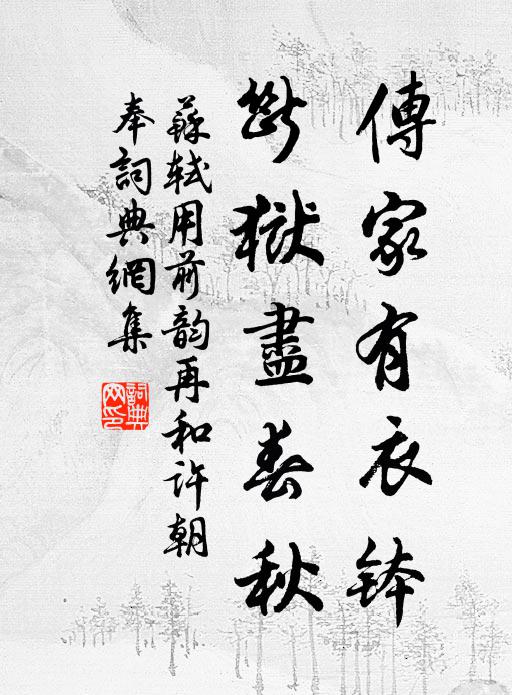 傳家有衣鉢
斷獄盡春秋
蘇軾用前韵再和許朝
奉詞典網集
詞典網印